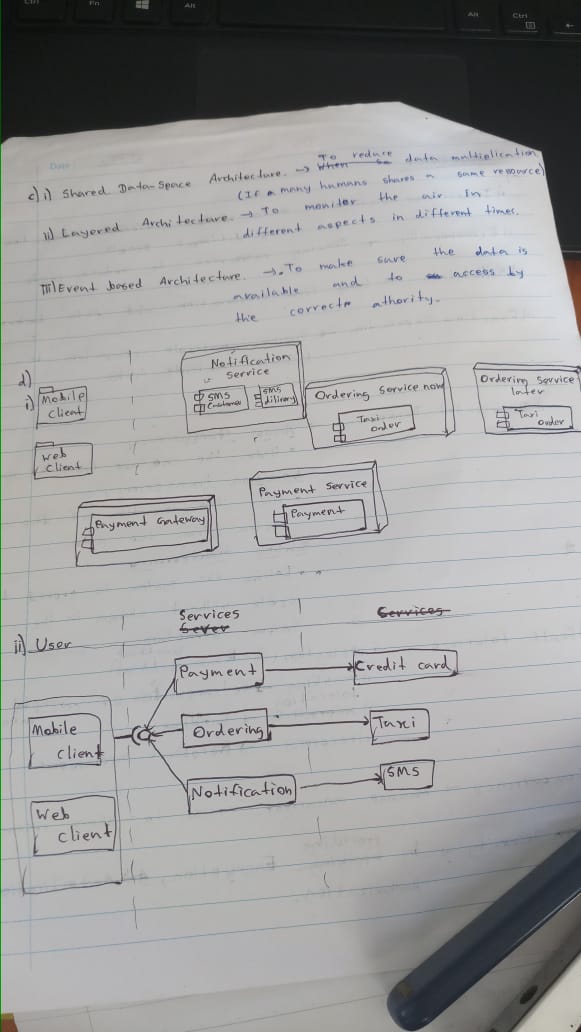 Ctrl
Fn
Alt
Alt
Ctrl
Date
c) i) Shared Data-Space Architecture. → When To reduce data multiplication.
(If a many humans shares a same resource)
ii) Layered Architecture. → To moniter the air in
different aspects in different times.
iii) Event based Architecture. →. To make sure the data is
available and to access by
the correct athority.
d)
i) Mobile
Client
Web
Client
Notification
Service
SMS
Customer
SMS
dilivery
Ordering Service now
Taxi
order
Ordering Service
later
Taxi
order
Payment Gateway
Payment Service
Payment
Services
Sever
Services
ii) User
Mobile
Client
Web
Client
Payment
Credit card
Ordering
Taxi
Notification
SMS